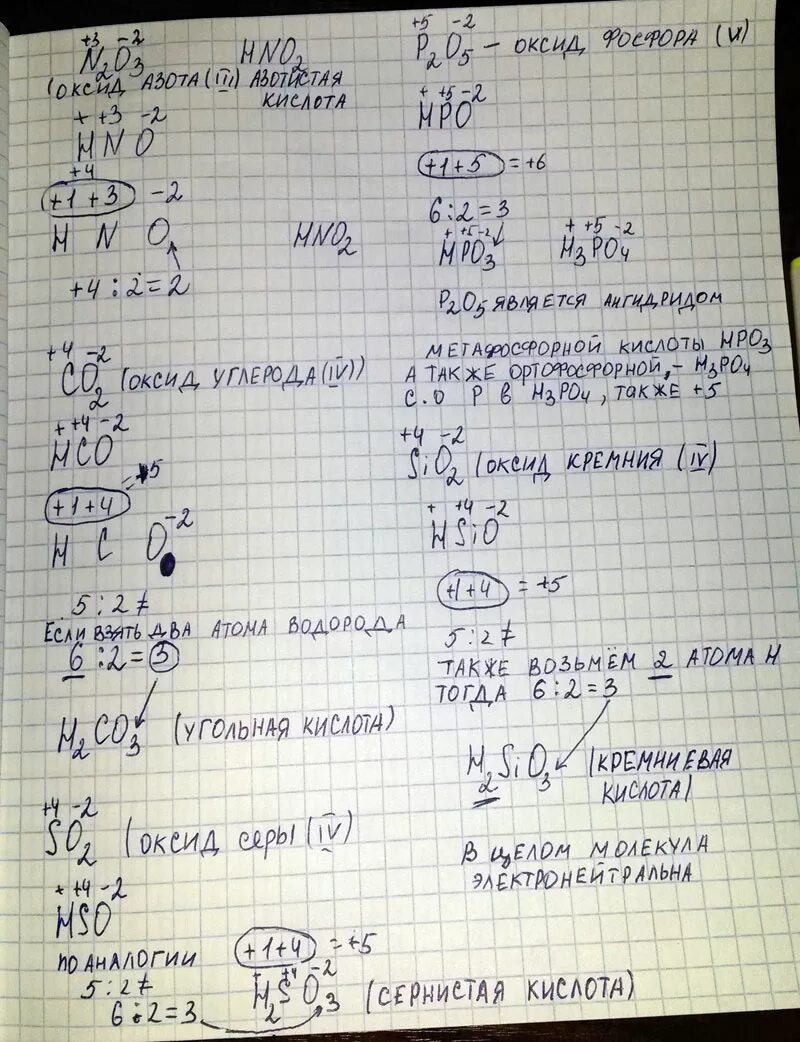 +3 -2
N2O3 HNO2
(оксид азота (III) азотистая
кислота
+ +3 -2
H N O
+4
+1 +3 -2
H N O HNO2
+4 : 2 = 2
+4 -2
CO2 (оксид углерода (IV))
+ +4 -2
HCO
+1+4 = +5
H C O -2
5 : 2 ≠
Если взять два атома водорода
6 : 2 = 3
H2CO3 (угольная кислота)
+4 -2
SO2 (оксид серы (IV)
+ +4 -2
HSO
по аналогии +1+4 = +5
5 : 2 ≠
6 : 2 = 3
+ +4 -2
H2SO3 (сернистая кислота)
+5 -2
P2O5 – оксид фосфора (V)
+ +5 -2
HPO
+1+5 = +6
6 : 2 = 3
+ +5 -2 + +5 -2
HPO3 H3PO4
P2O5 является ангидридом
метафосфорной кислоты HPO3
а также ортофосфорной, – H3PO4
с.о P в H3PO4, также +5
+4 -2
SiO2 (оксид кремния (IV)
+ +4 -2
HSiO
+1+4 = +5
5 : 2 ≠
также возьмём 2 атома H
тогда 6 : 2 = 3
H2SiO3 (кремниевая
кислота)
в целом молекула
электронейтральна